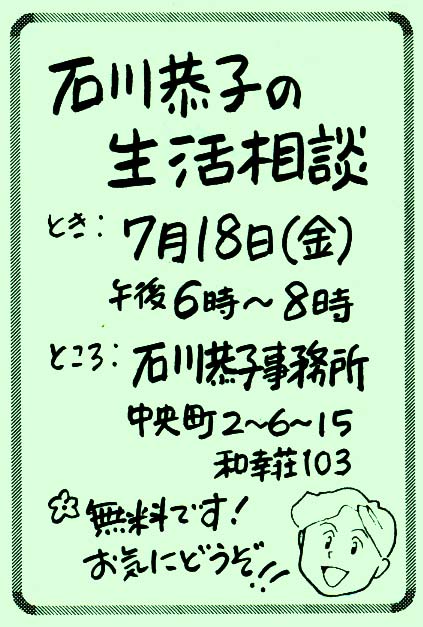 石川恭子の
生活相談
とき：7月18日(金)
午後6時～8時
ところ：石川恭子事務所
中央町2～6～15
和幸荘103
無料です！
お気にどうぞ!!